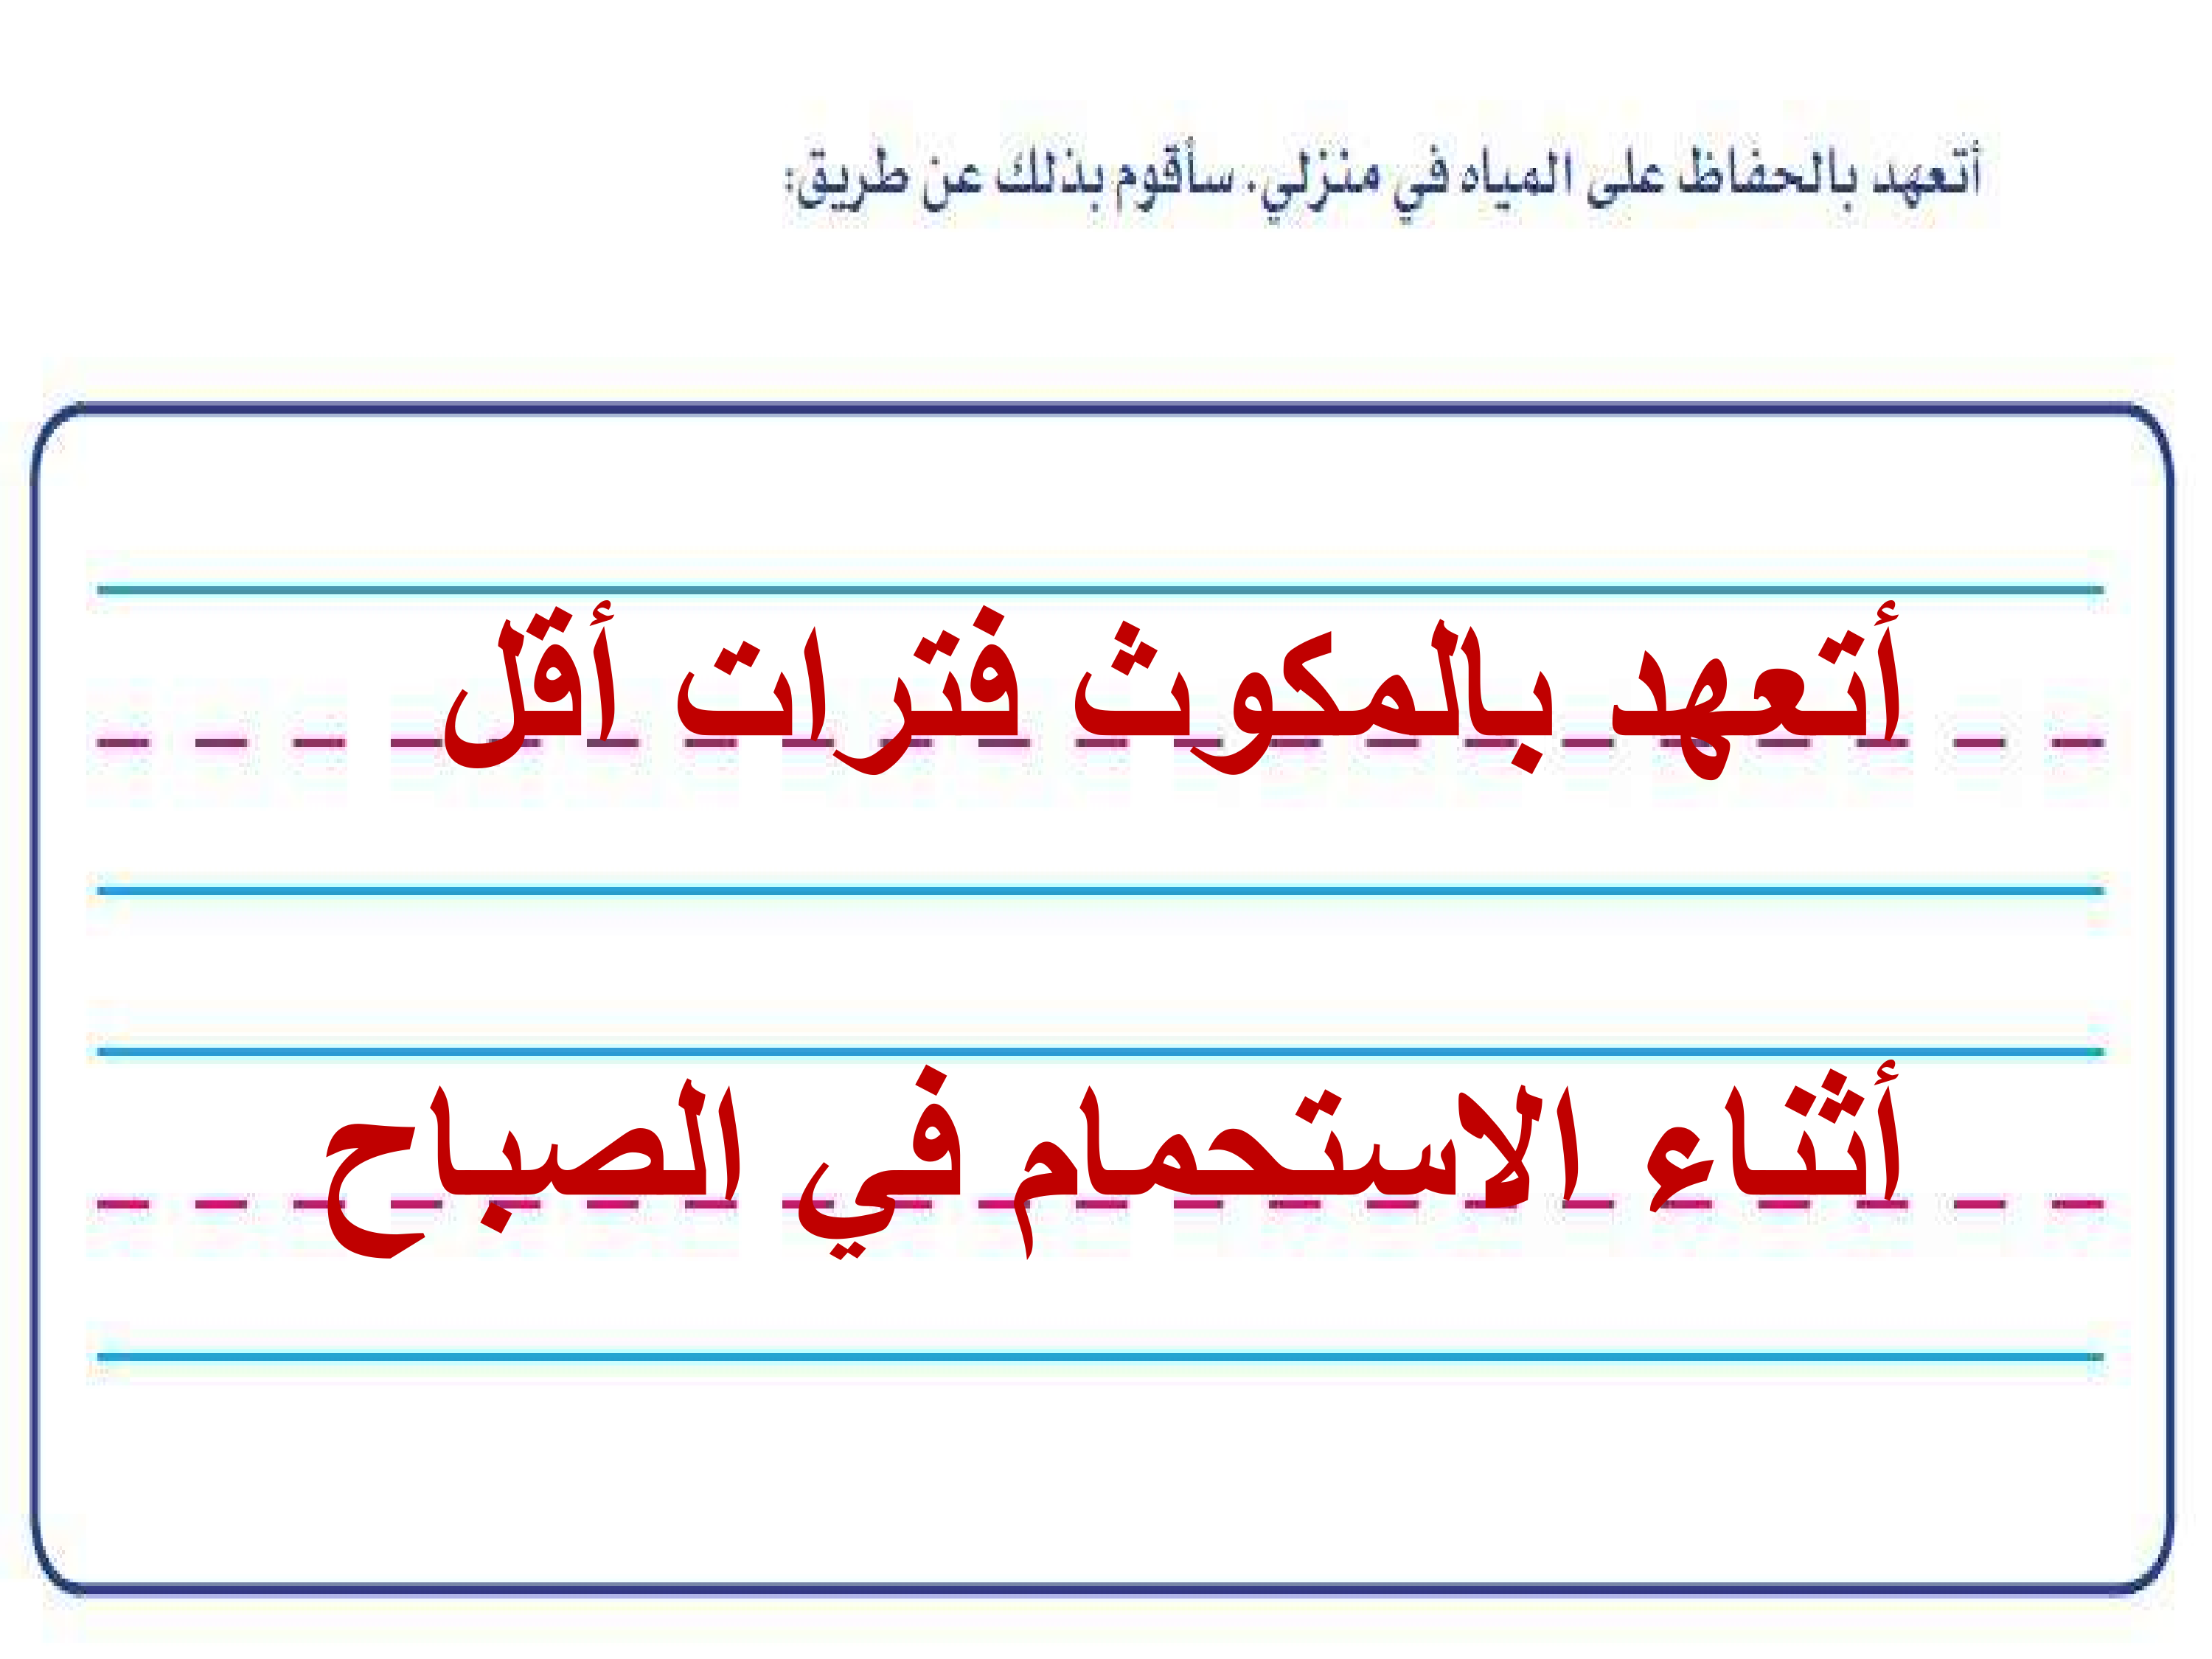 أتعهد بالحفاظ على المياه في منزلي. سأقوم بذلك عن طريق:
أتعهد بالمكوث فترات أقل
أثناء الاستحمام في الصباح